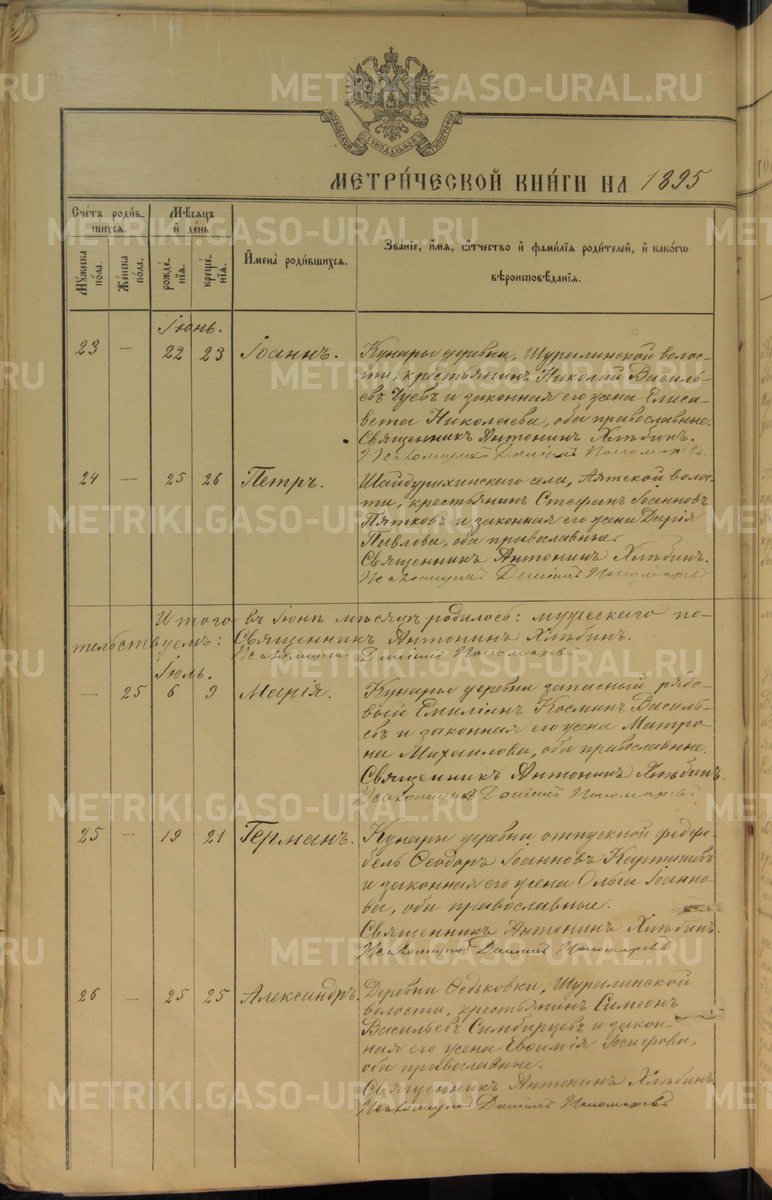 МОСКОВСКОЙ СИНОДАЛЬНОЙ ТИПОГРАФІИ
METRIKI.GASO-URAL.RU
МЕТРИ́ЧЕСКОЙ КНИ́ГИ НА 1895
Сче́тъ роди́в-
шихся.
Мѣ́сяцъ
и҆ де́нь
Мꙋ́жеска по́ла.
Же́нска по́ла.
рожде́-
нїѧ.
креще́-
нїѧ.
И҆мена̀ роди́вшихся.
Зва́нїе, и҆́мѧ, ѻ҆́тчество и҆ фами́лїѧ роди́телей, и҆ како́гѡ
вѣроисповѣ́данїѧ.
Іюнь.
23 — 22 23 Іоаннъ.
Кунары деревни, Шуралинской волос-
ти, крестьянинъ Николай Василь-
евъ Чуевъ и законная его жена Елиса-
вета Николаева, оба православные.
Священникъ Антонинъ Хлѣбинъ.
Псаломщикъ Даніилъ Пономаревъ
24 — 25 26 Петръ.
Шайдурихинскаго села, Аятской волос-
ти, крестьянинъ Стефанъ Іоанновъ
Пятковъ и законная его жена Дарія
Павлова, оба православные.
Священникъ Антонинъ Хлѣбинъ.
Псаломщикъ Даніилъ Пономаревъ
Итого въ Іюнѣ мѣсяцѣ родилось: мужескаго по-
тельствуемъ: Священникъ Антонинъ Хлѣбинъ.
Псаломщикъ Даніилъ Пономаревъ
Іюль.
— 25 6 9 Марія.
Кунары деревни запасный рядо-
вый Емиліанъ Косминъ Василь-
евъ и законная его жена Матро-
на Михаилова, оба православные.
Священникъ Антонинъ Хлѣбинъ.
Псаломщикъ Даніилъ Пономаревъ
25 — 19 21 Германъ.
Кунары деревни отпускной фельдфе-
бель Ѳеодоръ Іоанновъ Карташевъ
и законная его жена Ольга Іоанно-
ва, оба православные.
Священникъ Антонинъ Хлѣбинъ.
Псаломщикъ Даніилъ Пономаревъ
26 — 25 25 Александръ.
Деревни Ѳедьковки, Шуралинской
волости, крестьянинъ Симеонъ
Васильевъ Симбирцевъ и закон-
ная его жена Евѳимія Іосифова,
оба православные.
Священникъ Антонинъ Хлѣбинъ
Псаломщикъ Даніилъ Пономаревъ